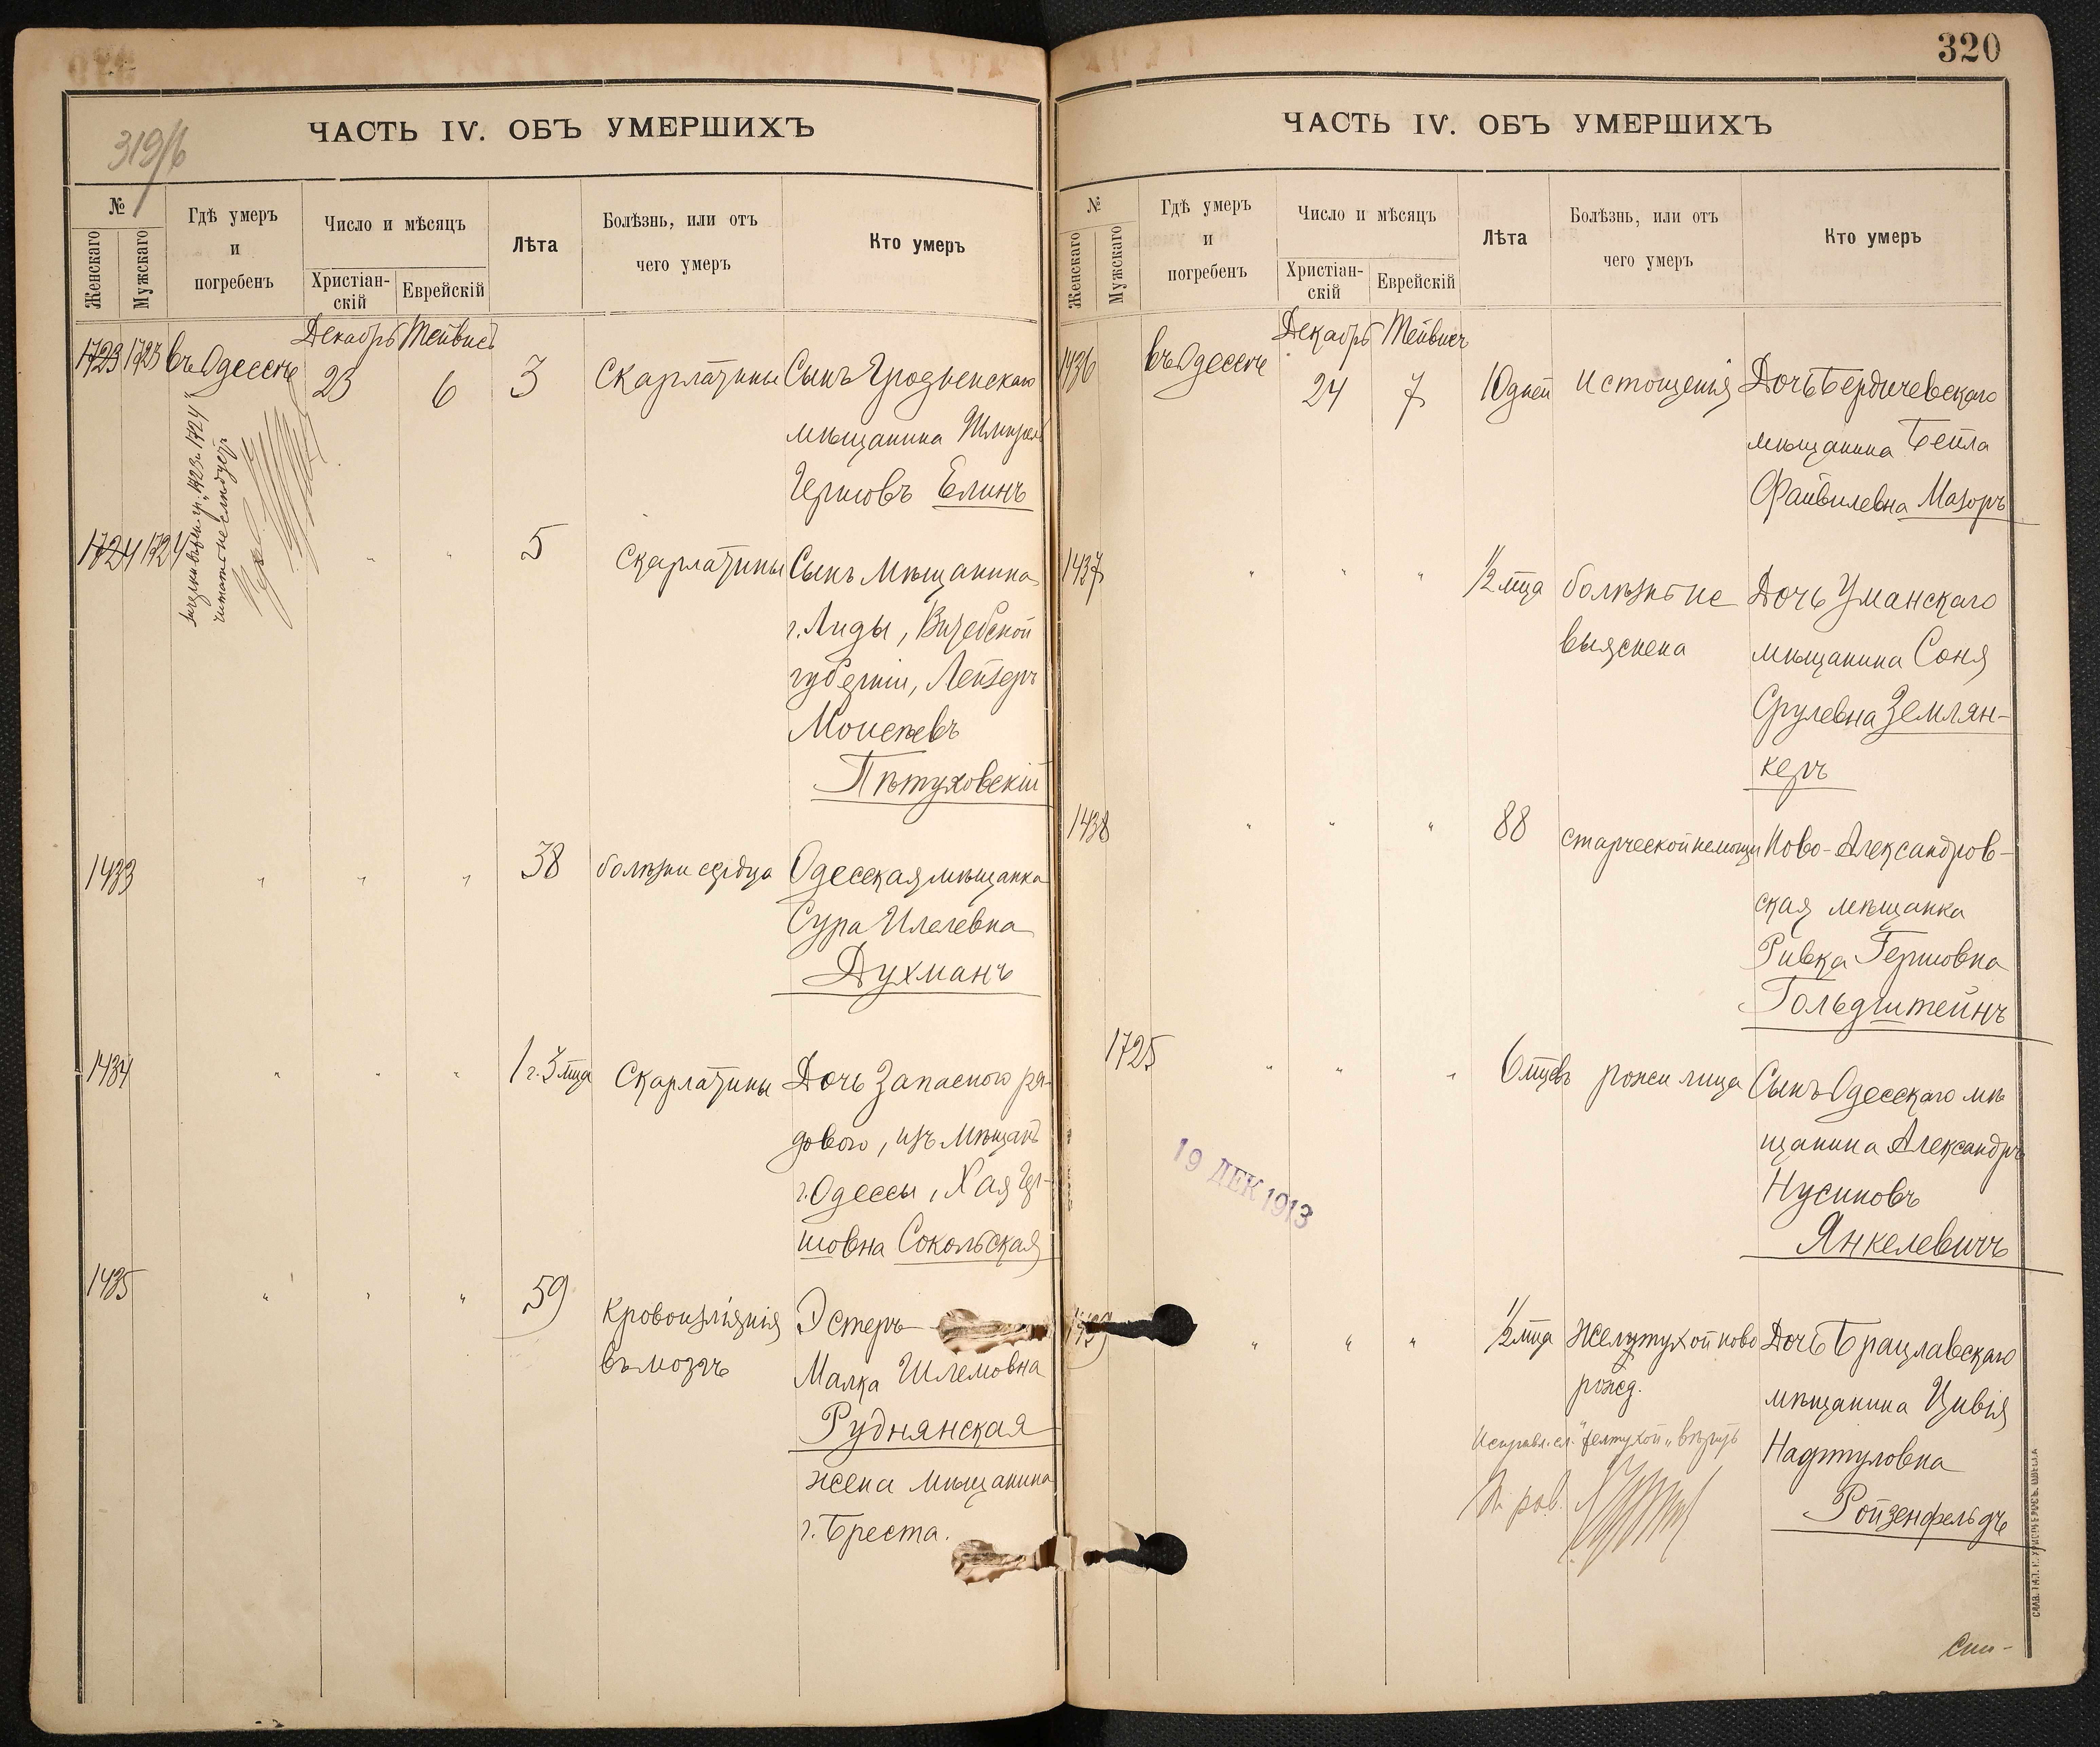 319/б
ЧАСТЬ IV. ОБЪ УМЕРШИХЪ
№
Женскаго
Мужскаго
Гдѣ умеръ
и
погребенъ
Число и мѣсяцъ
Христіан-
скій
Еврейскій
Лѣта
Болѣзнь, или отъ
чего умеръ
Кто умеръ
Декабрь Тейвисъ
1723 1723 въ Одессѣ 23 6 3 Скарлатины Сынъ Гродненскаго
мѣщанина
Гершовъ Елинъ
1724 1724 " " 5 Скарлатины Сынъ мѣщанина
г. Лиды, Витебской
губерніи, Лейзеръ
Моисеевъ
Пѣтуховскій
1433 " " " 38 болѣзни сердца Одесская мѣщанка
Сура Илевна
Духманъ
1434 " " " 1 г. 3 мца Скарлатины Дочь Запасного ря-
дового, изъ мѣщанъ
г. Одессы, Хая Гер-
шовна Сокольская
1435 " " " 59 Кровоизліянія Эстеръ
въ мозгъ Малка Шлемовна
Руднянская
жена мѣщанина
г. Бреста.
320
ЧАСТЬ IV. ОБЪ УМЕРШИХЪ
№
Женскаго
Мужскаго
Гдѣ умеръ
и
погребенъ
Число и мѣсяцъ
Христіан-
скій
Еврейскій
Лѣта
Болѣзнь, или отъ
чего умеръ
Кто умеръ
Декабрь Тейвисъ
1436 въ Одессѣ 24 7 10 дней истощенія Дочь Бердичевскаго
мѣщанина Бейла
Файвилевна Мазоръ
1437 " " " ½ мца болѣзнь не Дочь Уманскаго
выяснена мѣщанина Соня
Срулевна Землян-
керъ
1438 " " " 88 старческой немощи Ново-Александров-
ская мѣщанка
Ривка Гершовна
Гольдштейнъ
1725 " " " 6 мцевъ рожи лица Сынъ Одесскаго мѣ
щанина Александръ
Нусиновъ
Янкелевичъ
19 ДЕК 1913
1439 " " " ½ мца Желтухой ново Дочь Брацлавскаго
рожд. мѣщанина Цивія
Нафтуловна
Ройзенфельдъ
Исправл. сл. "желтухой" вѣрить